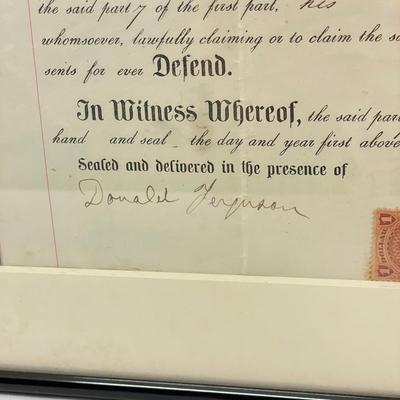 the said part y of the first part, his
whomsoever, lawfully claiming or to claim the sa
sents for ever Defend.
In Witness Whereof, the said part
hand and seal the day and year first above
Sealed and delivered in the presence of
Donald Ferguson
1 DOLLAR